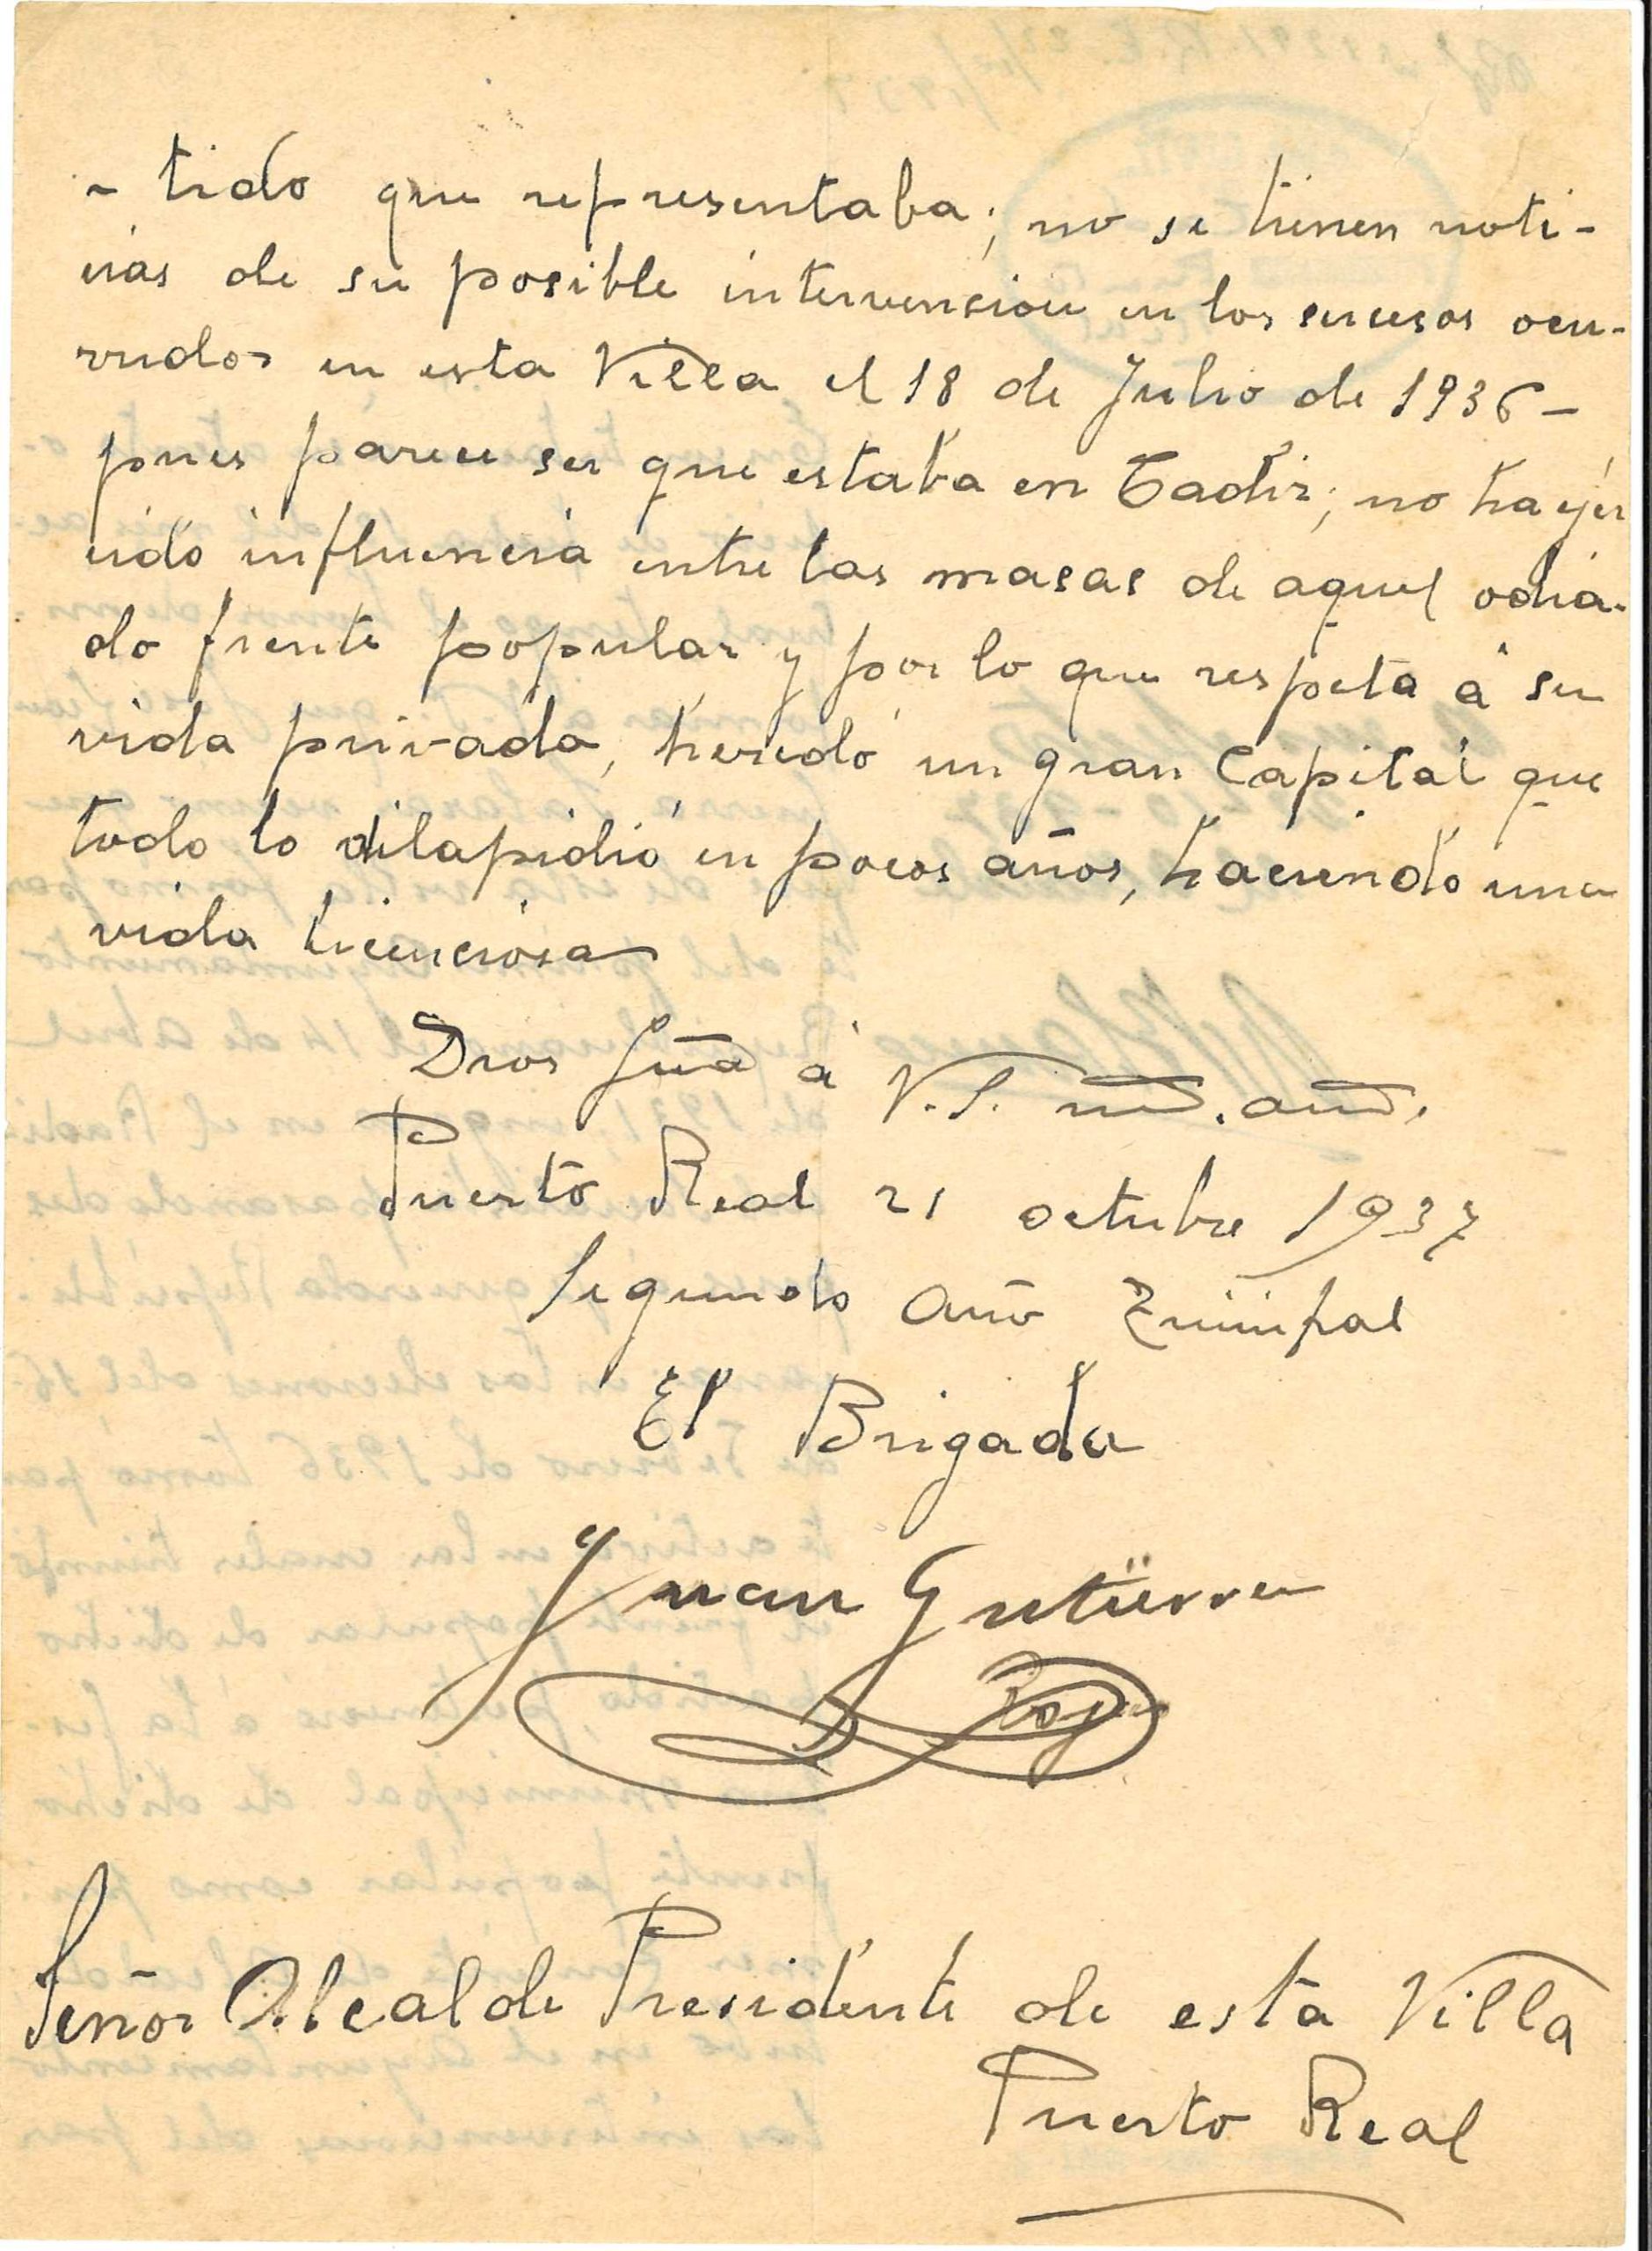 - tido que representaba; no se tienen noti-
cias de su posible intervencion en los sucesos ocu-
rridos en esta Villa el 18 de Julio de 1936 -
pues parece ser que estaba en Cadiz; no ha ejer
cido influencia entre las masas de aquel odia-
do frente popular y por lo que respeta á su
vida privada, heredó un gran Capital que
todo lo dilapidió en pocos años, haciendo una
vida licenciosa
Dios gua á V.S. m. añ.
Puerto Real 21 octubre 1937
Segundo año Triunfal
El Brigada
Juan Gutierrez
Señor Alcalde Presidente de esta Villa
Puerto Real